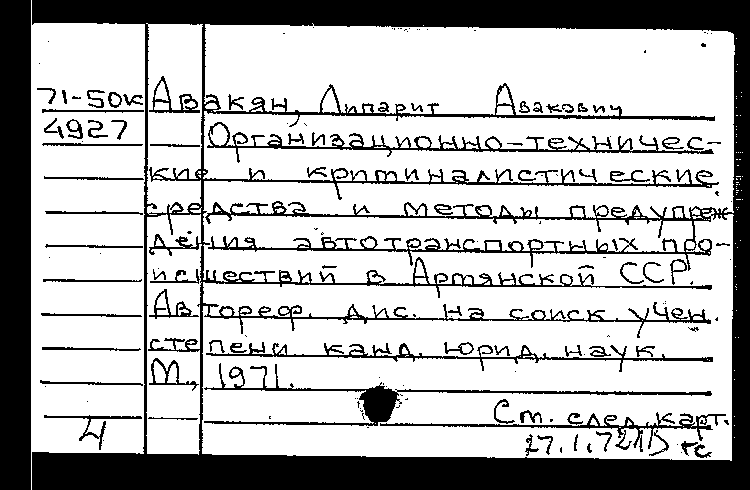 71-50к Авакян, Липарит Авакович
4927 Организационно-техничес-
кие и криминалистические
средства и методы предупреж-
дения автотранспортных про-
исшествий в Армянской ССР.
Автореф. дис. на соиск. учен.
степени канд. юрид. наук.
М., 1971.
См. след. карт.
4 27.1.72